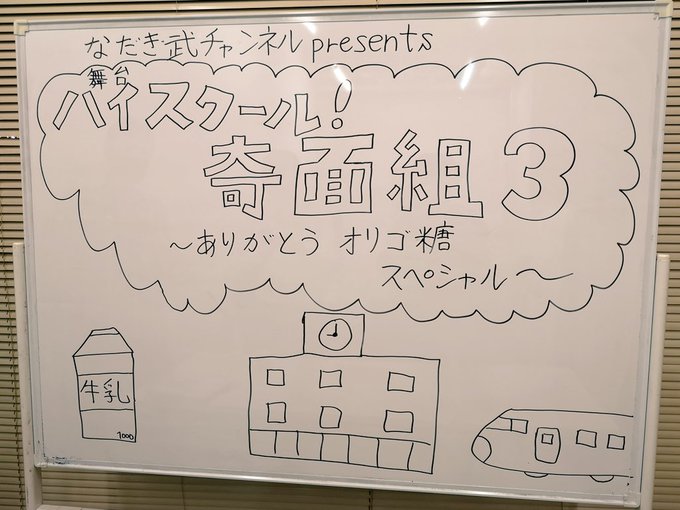 なだぎ武チャンネル presents
舞台
ハイスクール!
奇面組3
～ありがとう オリゴ糖
スペシャル～
牛乳
1000